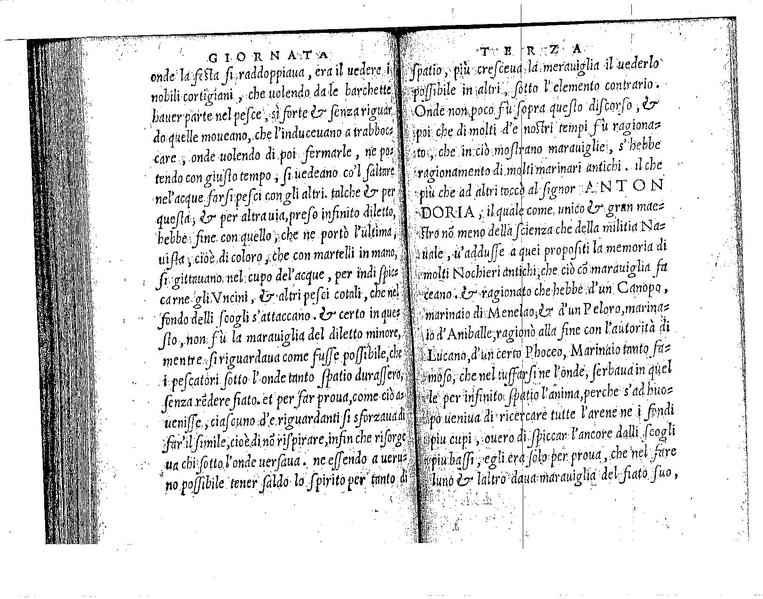 GIORNATA
onde la festa si raddoppiaua, era il uedere i
nobili cortigiani, che uolendo da le barchette
hauer parte nel pesce, sì forte & senza riguar
do quelle moueano, che l'induceuano a trabboc=
care, onde uolendo di poi fermarle, ne po=
tendo con giusto tempo, si uedeano co'l saltare
nel'acque farsi pesci con gli altri. talche & per
questa, & per altra uia, preso infinito diletto,
hebbe fine con quello, che ne portò l'ultima,
uista, cioè di coloro, che con martelli in mano,
si gittauano nel cupo del'acque, per indi spic=
carne gli Vncini, & altri pesci cotali, che nel
fondo delli scogli s'attaccano. & certo in que=
sto, non fù la marauiglia del diletto minore,
mentre si riguardaua come fusse possibile, che
i pescatori sotto l'onde tanto spatio durassero,
senza rēdere fiato. et per far proua, come ciò a=
uenisse, ciascuno d'e riguardanti si sforzaua di
far'il simile, cioè di nō rispirare, infin che risorge
ua chi sotto l'onde uersaua. ne essendo a ueru=
no possibile tener saldo lo spirito per tanto di
TERZA
spatio, più cresceua la merauiglia il uederlo
possibile in altri, sotto l'elemento contrario.
Onde non poco fù sopra questo discorso, &
poi che di molti d'e nostri tempi fù ragiona=
to, che in ciò mostrano marauiglie, s'hebbe
ragionamento di molti marinari antichi. il che
più che ad altri toccò al signor ANTON
DORIA, il quale come unico & gran mae=
stro nō meno della scienza che della militia Na=
uale, u'addusse a quei propositi la memoria di
molti Nochieri antichi, che ciò cō marauiglia fa
ceano. & ragionato che hebbe d'un Canopo,
marinaio di Menelao, & d'un Peloro, marina=
io d'Aniballe, ragionò alla fine con l'autorità di
Lucano, d'un certo Phoceo, Marinaio tanto fa=
moso, che nel tuffarsi ne l'onde, serbaua in quel
le per infinito spatio l'anima, perche s'ad huo=
po ueniua di ricercare tutte l'arene ne i fondi
piu cupi, ouero di spiccar l'ancore dalli scogli
piu bassi, egli era solo per proua, che nel fare
l'uno & l'altro daua marauiglia del fiato suo,